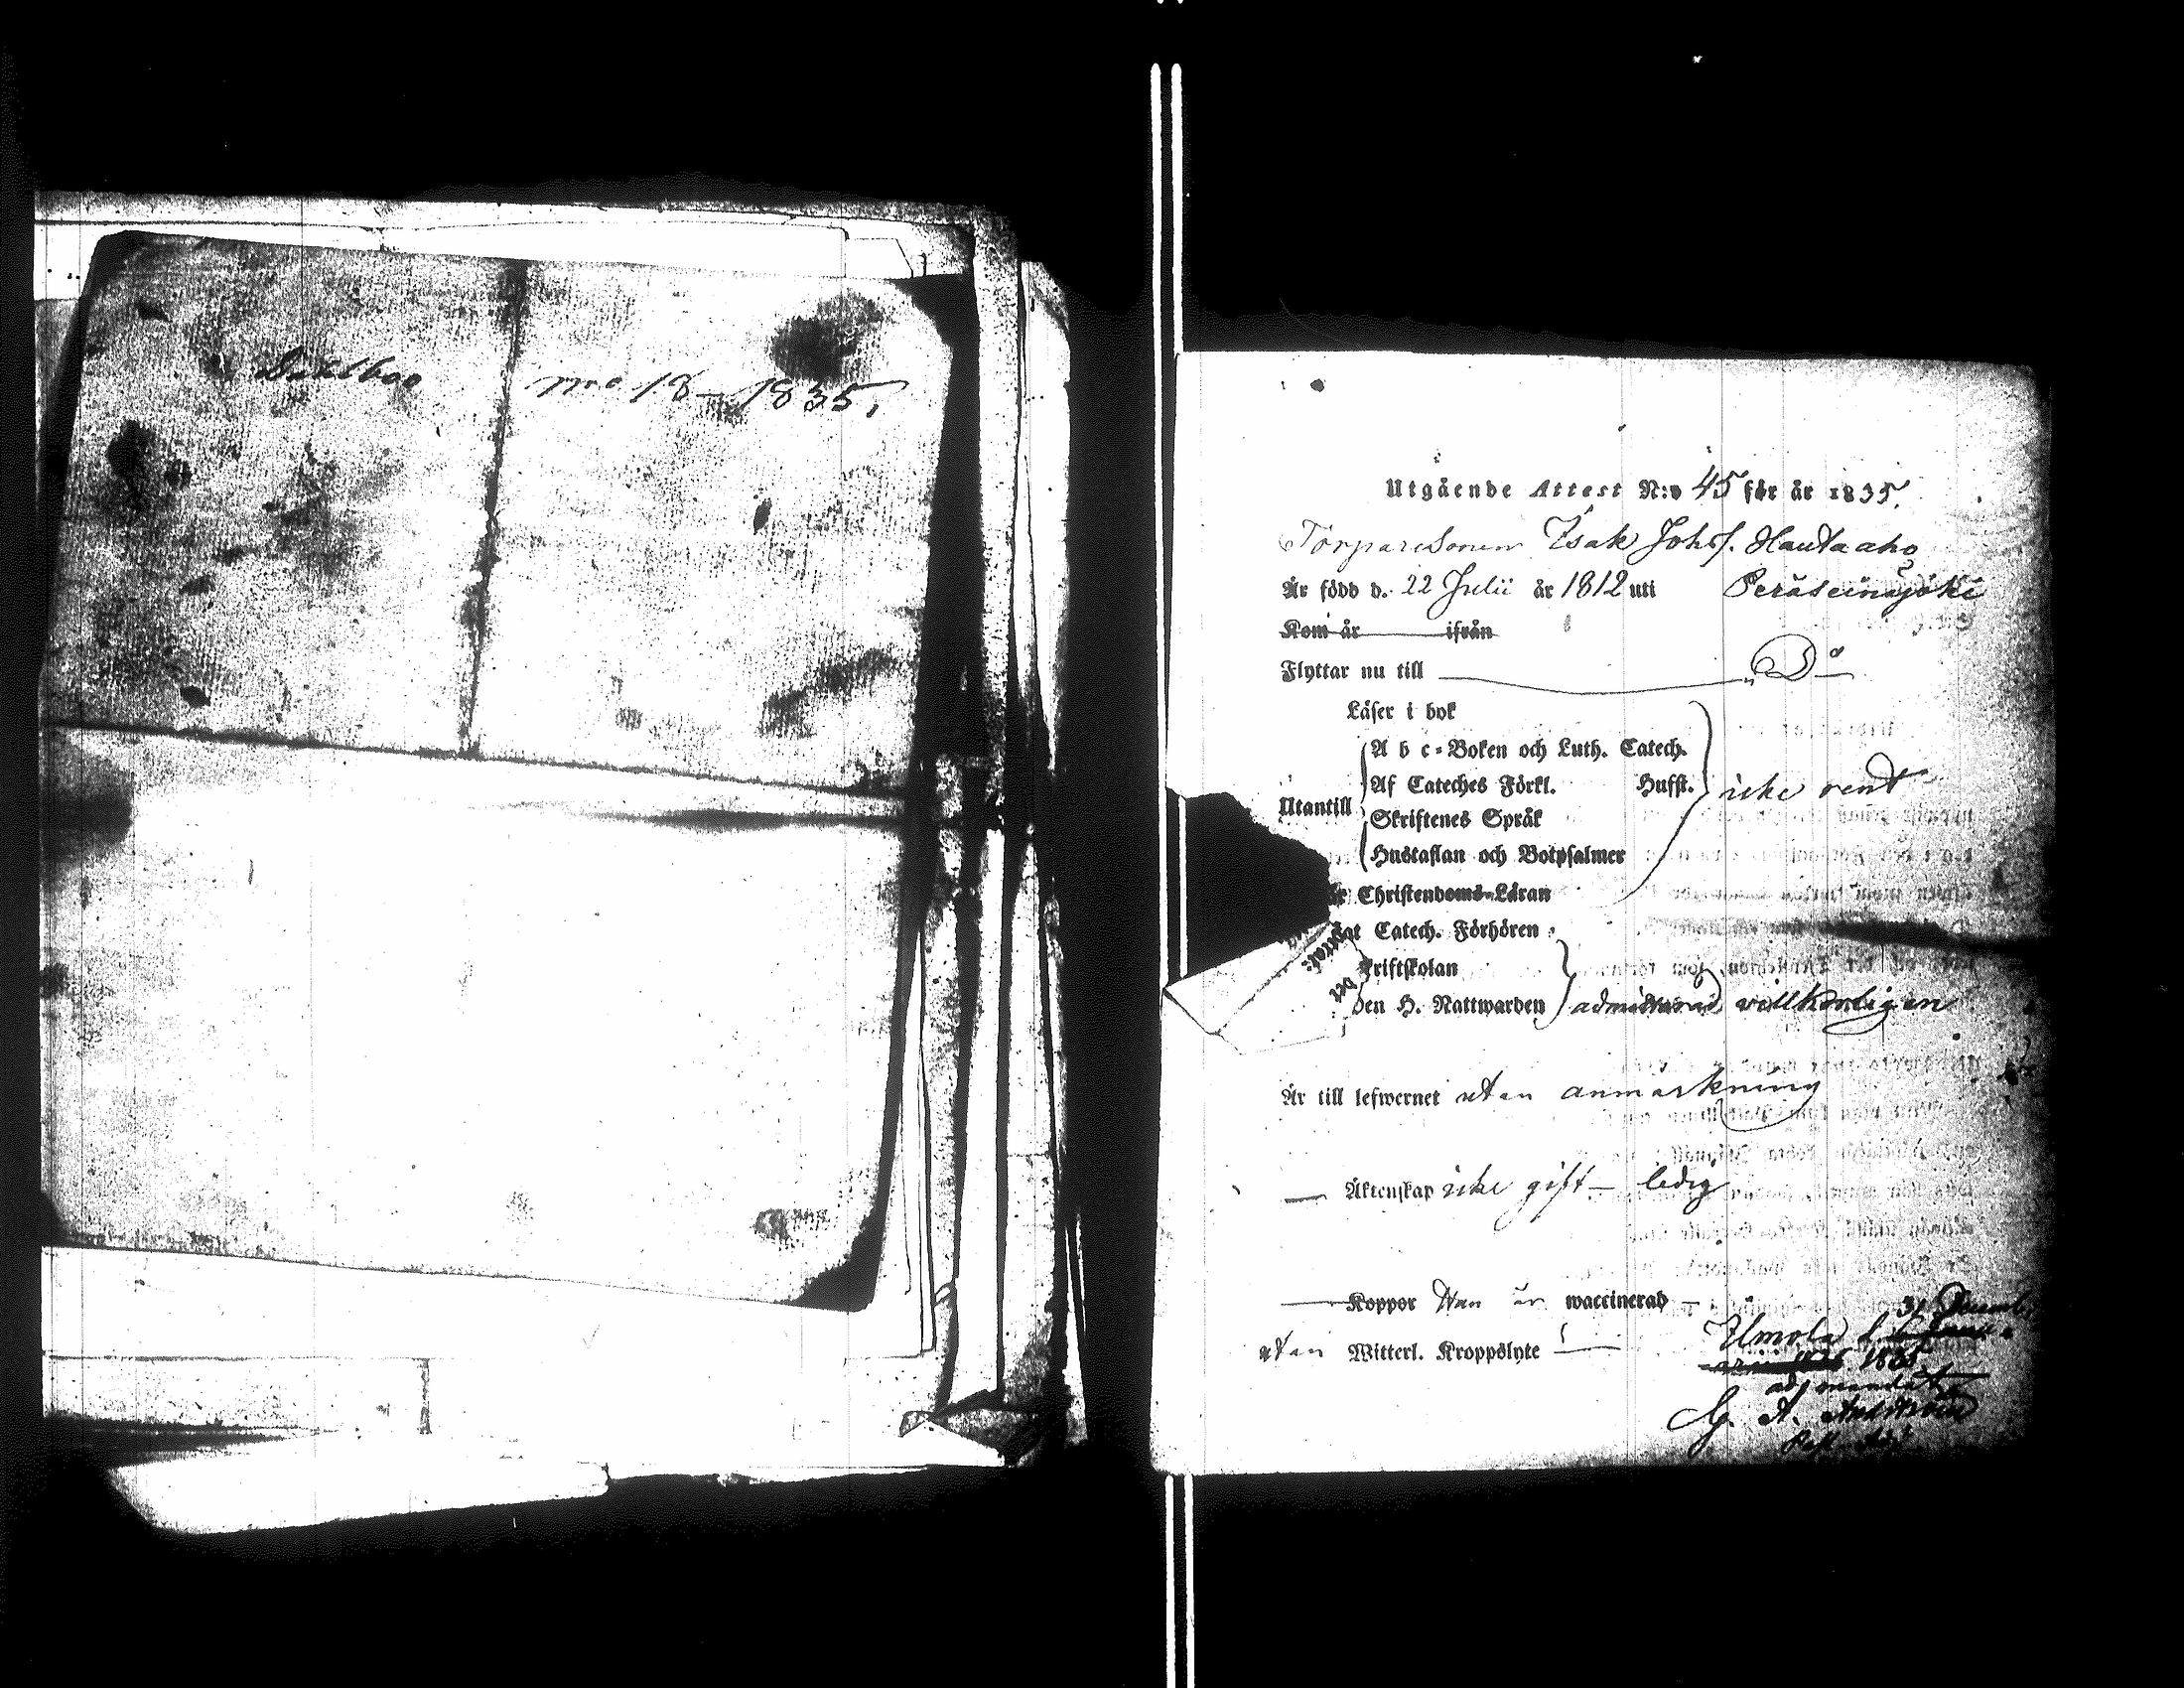 No 18 — 1835.
Utgående Attest N:o 45 för år 1835.
Torparesonen Isak Johsf. Hautaaho
Är född d. 22 Julii år 1812 uti Peräseinäjoki
Kom år ifrån
Flyttar nu till D:o
Läser i bok
A b c-Boken och Luth. Catech.
Af Cateches Förkl. Husfl.
Utantill
Skriftenes Språk
icke rent
Hustaflan och Botpsalmer
Christendoms-Läran
Catech. Förhören
riftskolan
den H. Nattwarden admitterad villkorligen
Är till lefwernet utan anmärkning
Äktenskap icke gift — ledig
Koppor Han är waccinerad
utan Witterl. Kroppslyte
31 December
Ilmola d.
1835
ad mandatum
A.